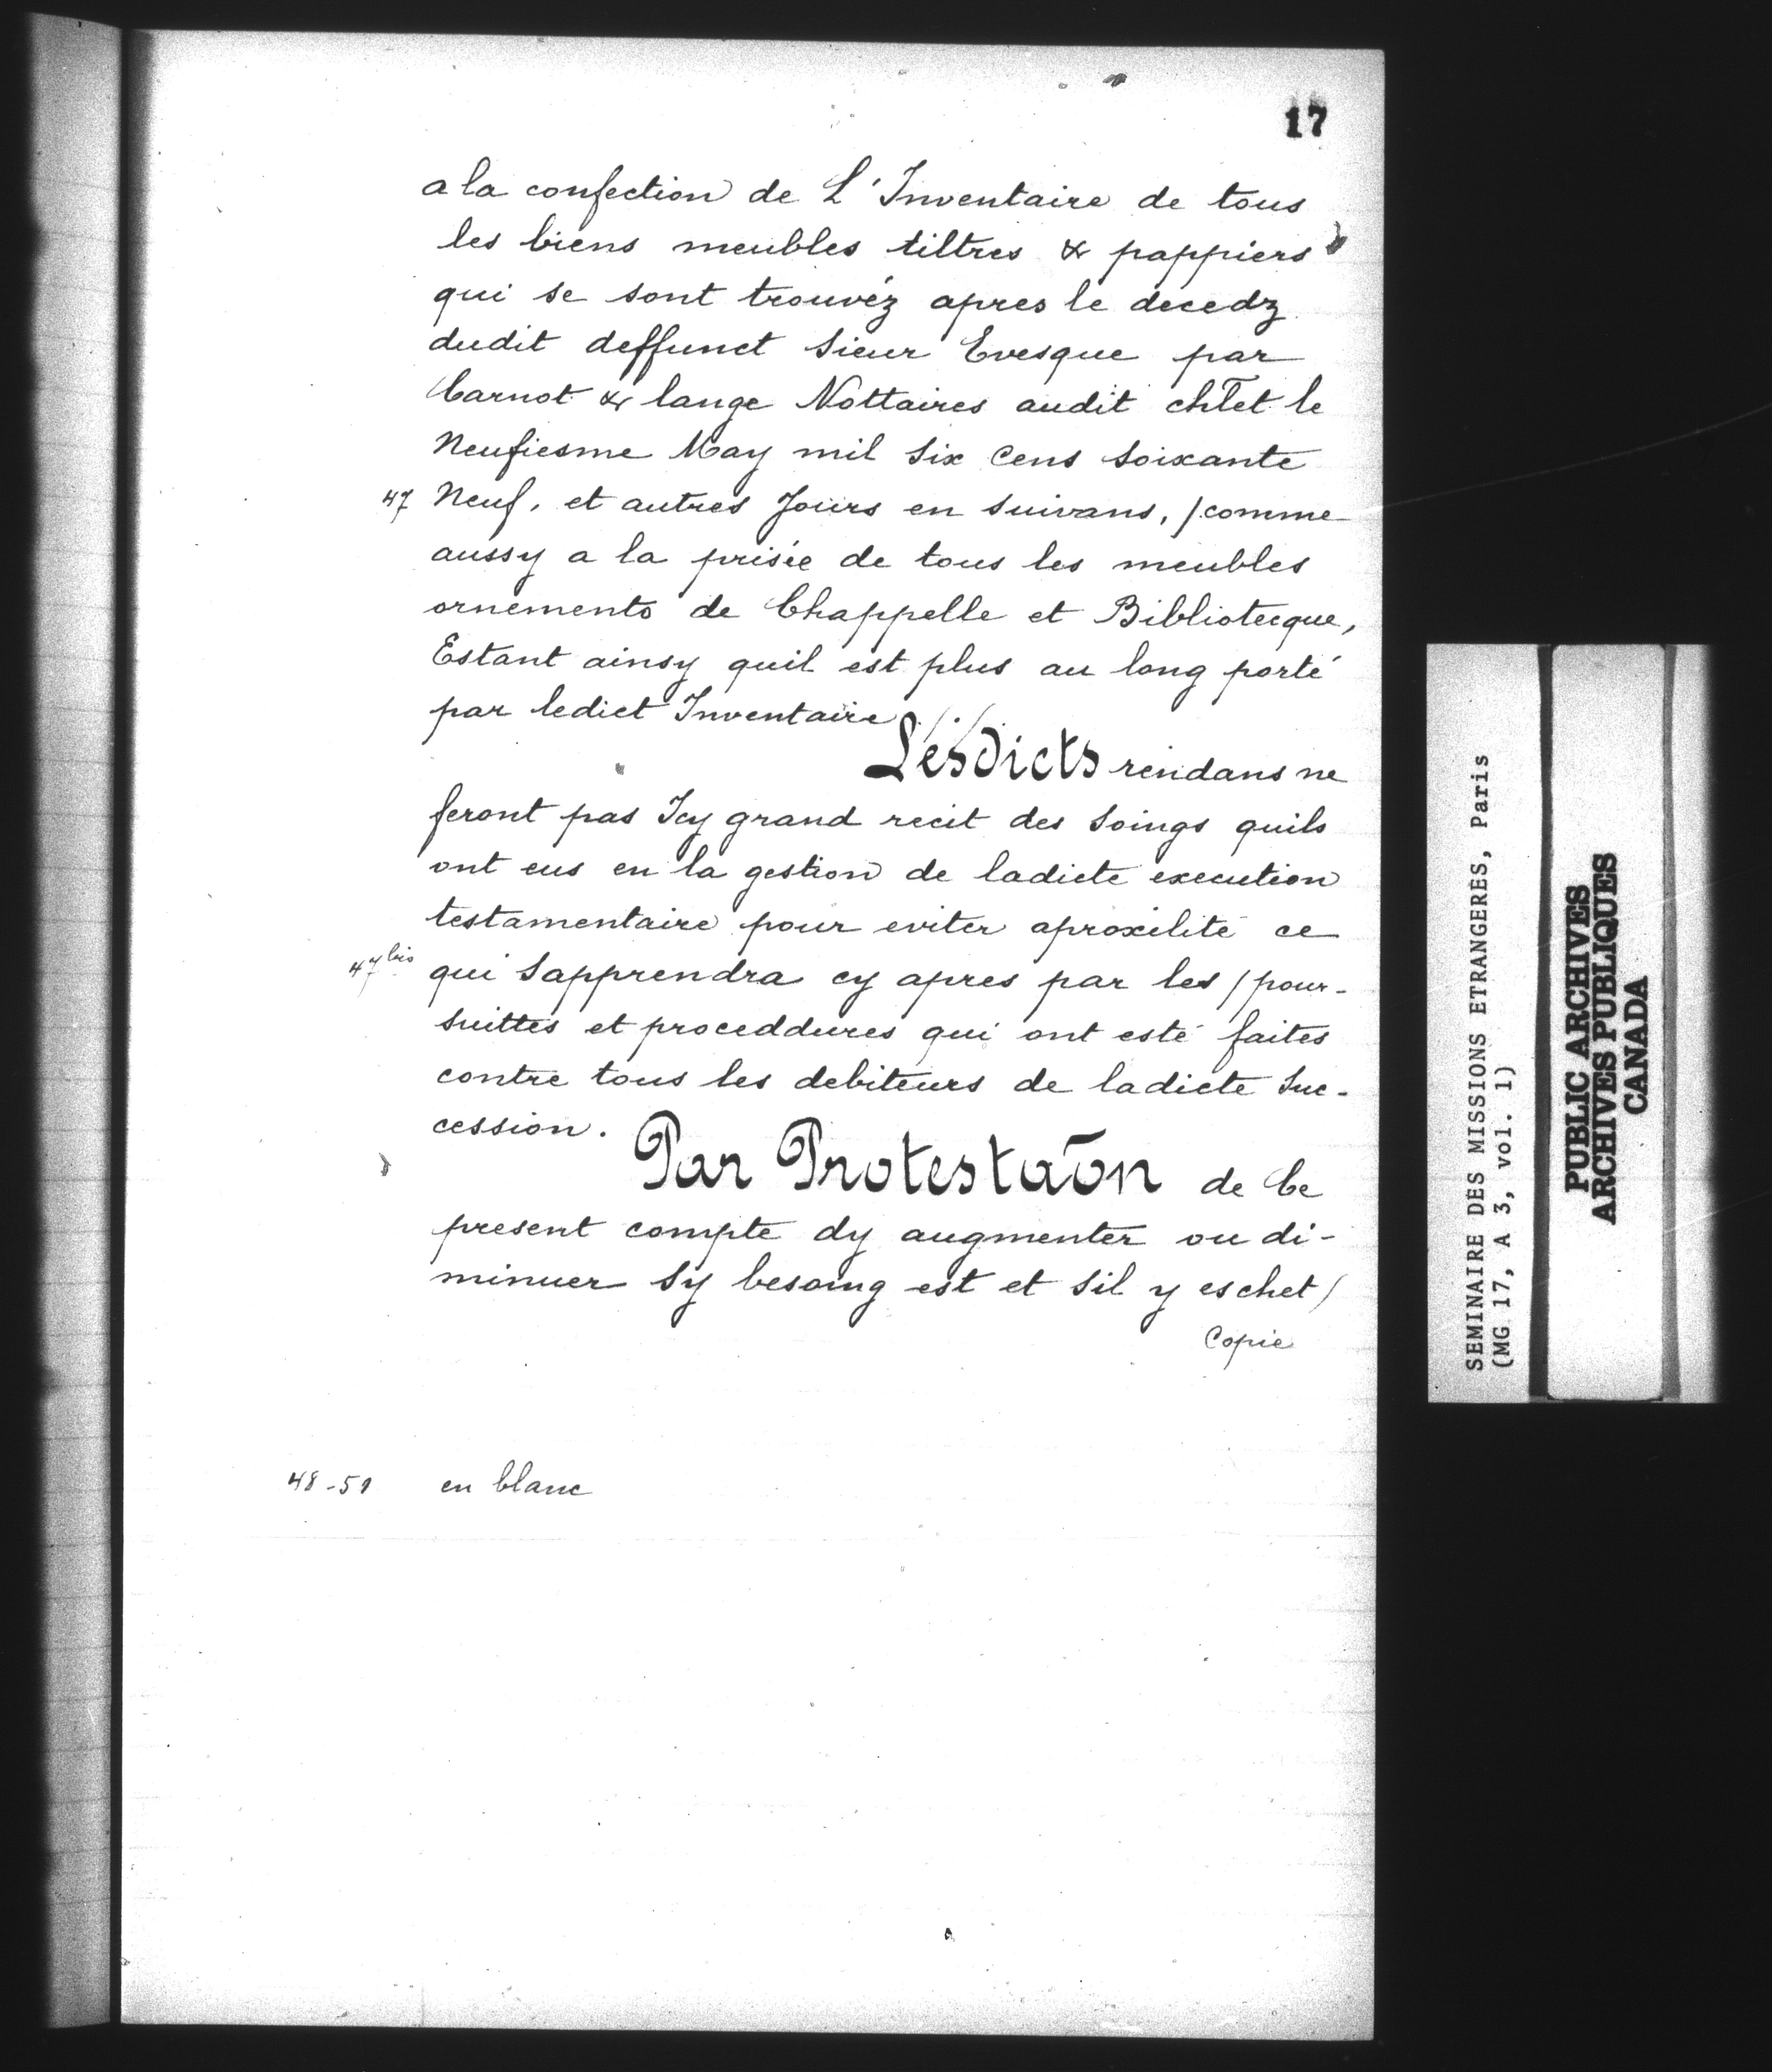 17
a la confection de L'Inventaire de tous
les biens meubles tiltres & pappiers
qui se sont trouvéz apres le decedz
dudit deffunct Sieur Evesque par
Carnot & lange Nottaires audit chlet le
Neufiesme May mil Six Cens Soixante
47 Neuf, et autres Jours en suivans, / comme
aussy a la prisée de tous les meubles
ornements de Chappelle et Bibliotecque,
Estant ainsy quil est plus au long porté
par ledict Inventaire /./
Lesdicts rendans ne
feront pas Icy grand recit des Soings quils
ont eus en la gestion de ladicte execution
testamentaire pour eviter aproxilité ce
47 bis qui Sapprendra cy apres par les / pour-
suittes et proceddures qui ont esté faites
contre tous les debiteurs de ladicte Suc-
cession.
Par Protestaōn de Ce
present compte dy augmenter ou di-
minuer Sy besoing est et Sil y eschet /
Copie
48-51 en blanc
SEMINAIRE DES MISSIONS ETRANGERES, Paris
(MG 17, A 3, vol. 1)
PUBLIC ARCHIVES
ARCHIVES PUBLIQUES
CANADA